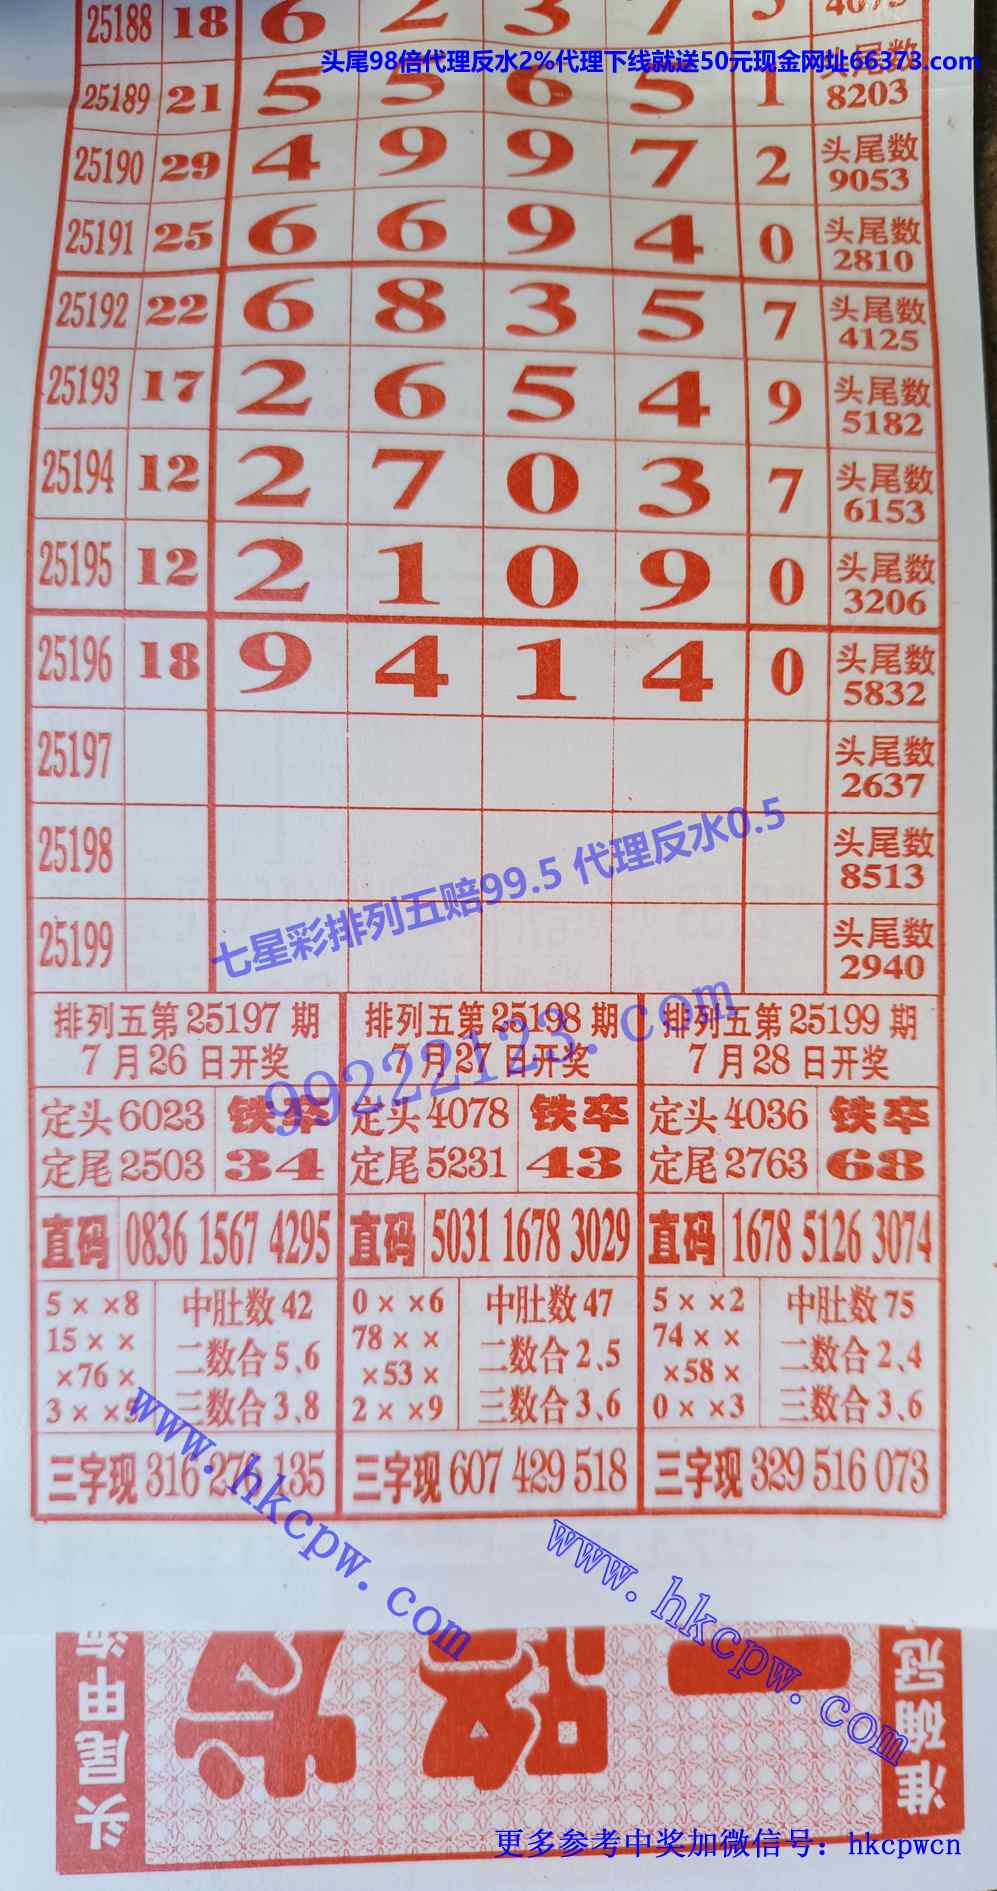 25188 18 6 2 3 7 5 4075
头尾98倍代理反水2%代理下线就送50元现金网址66373.com
25189 21 5 5 6 5 1 头尾数 8203
25190 29 4 9 9 7 2 头尾数 9053
25191 25 6 6 9 4 0 头尾数 2810
25192 22 6 8 3 5 7 头尾数 4125
25193 17 2 6 5 4 9 头尾数 5182
25194 12 2 7 0 3 7 头尾数 6153
25195 12 2 1 0 9 0 头尾数 3206
25196 18 9 4 1 4 0 头尾数 5832
25197 头尾数 2637
25198 头尾数 8513
七星彩排列五赔99.5 代理反水0.5
25199 头尾数 2940
99222123.com
排列五第25197期
7月26日开奖
定头6023
定尾2503
铁卒
34
直码 0836 1567 4295
5××8
15××
×76×
3××5
中肚数42
二数合5、6
三数合3、8
三字现 316 276 135
排列五第25198期
7月27日开奖
定头4078
定尾5231
铁卒
43
直码 5031 1678 3029
0××6
78××
×53×
2××9
中肚数47
二数合2、5
三数合3、6
三字现 607 429 518
排列五第25199期
7月28日开奖
定头4036
定尾2763
铁卒
68
直码 1678 5126 3074
5××2
74××
×58×
0××3
中肚数75
二数合2、4
三数合3、6
三字现 329 516 073
www.hkcpw.com
www.hkcpw.com
头尾甲
准确冠
一路
更多参考中奖加微信号：hkcpwcn